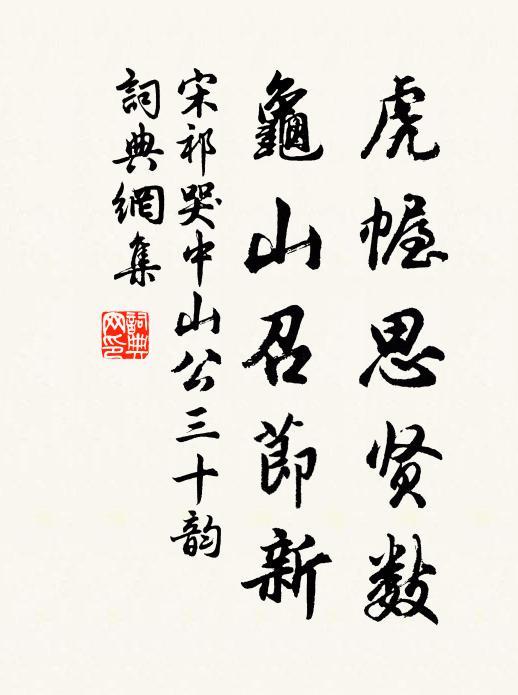 虎幄思贤数
龜山召節新
宋祁哭中山公三十韵
詞典網集
詞典网印